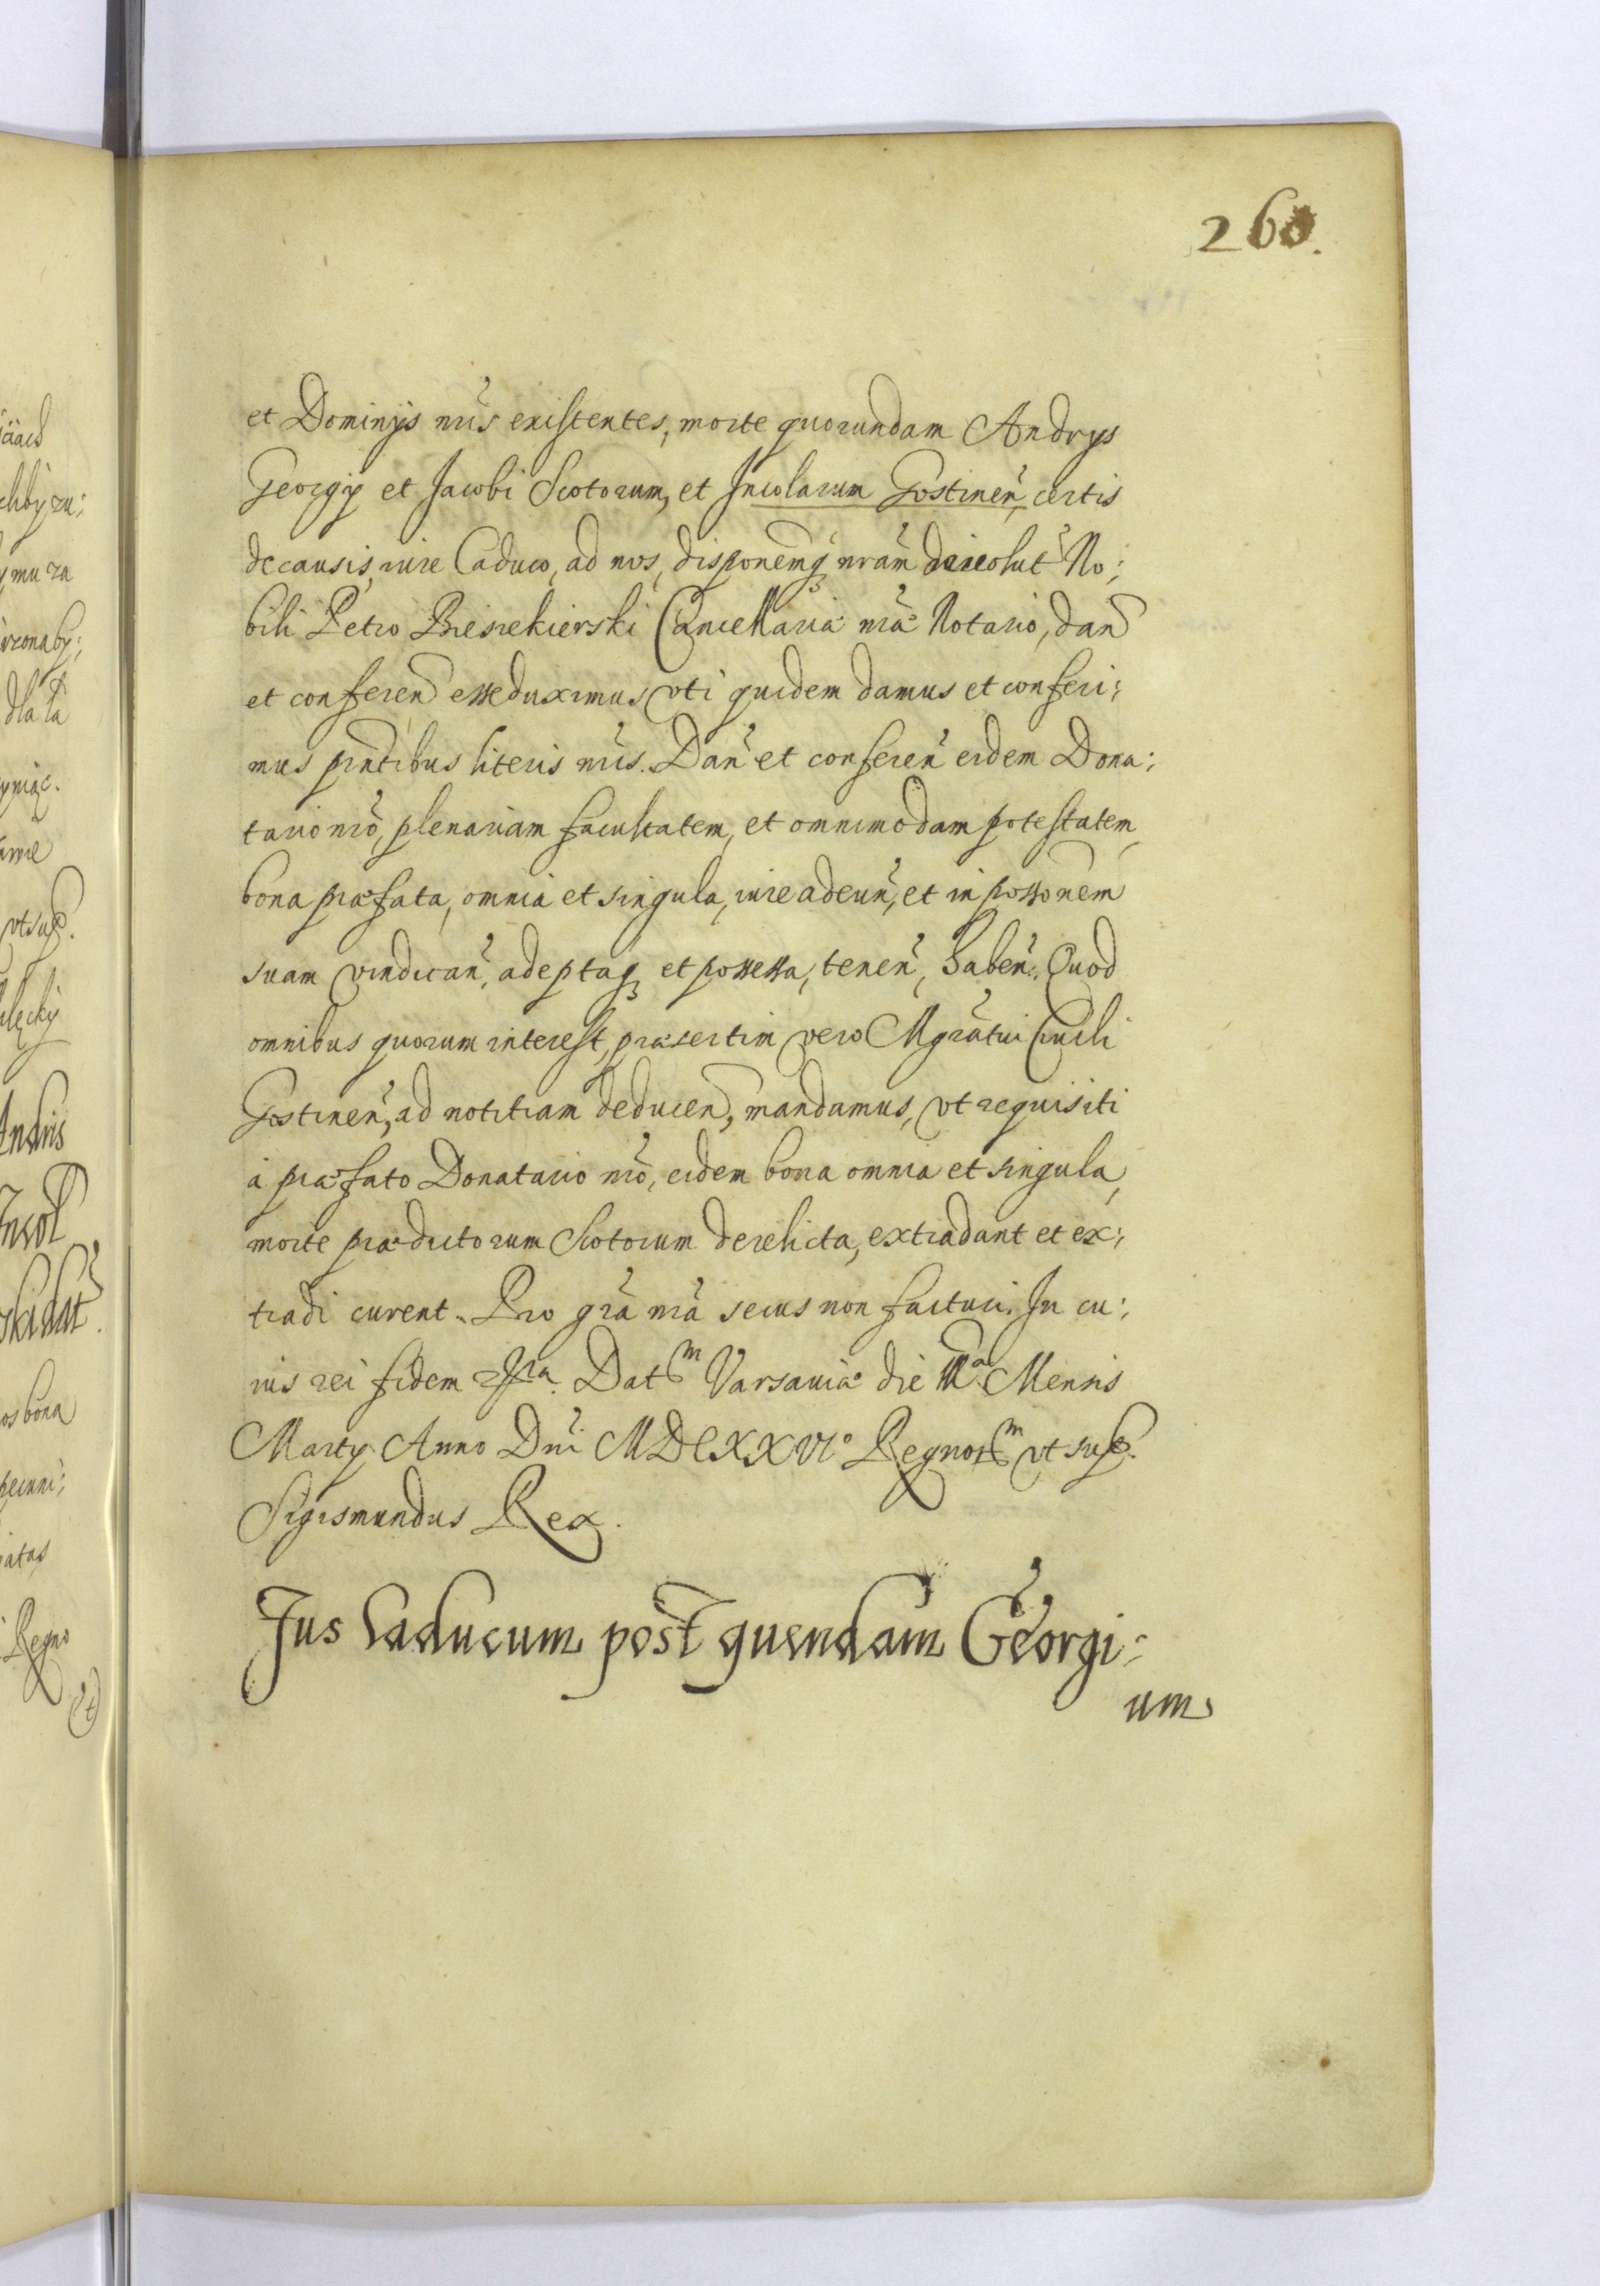 260.
et Dominijs nr̃is existentes, morte quorundam Andrys
Georgij et Jacobi Scotorum, et Incolarum Gostinen̄, certis
de causis, iure Caduco, ad nos, disponemq nrãm devolut No:
bili Petro Biesiekierski Cancellariæ nrãe Notario, dan̄
et conferen̄ esse duximus vti quidem damus et conferi:
mus pn̄tibus literis nr̃is. Dan̄ et conferen̄ eidem Dona:
tario nrõ, plenariam facultatem, et omnimodam potestatem,
bona præfata, omnia et singula, iure adeun̄, et in possonem
suam vindican̄, adeptaq et possessa, tenen̄, haben̄. Quod
omnibus quorum interest, præsertim vero Mgrãtui Ciuili
Gostinen̄, ad notitiam deducen̄, mandamus, vt requisiti
à præfato Donatario nrõ, eidem bona omnia et singula,
morte prædictorum Scotorum derelicta, extradant et ex:
tradi curent. Pro grã nrã secus non facturi. In cu:
ius rei fidem Dat Varsauiæ die Mensis
Martij Anno Dn̄i MDCXXVIo Regnorm vt sup.
Sigismundus Rex.
Jus Caducum post quendam Georgi:
um